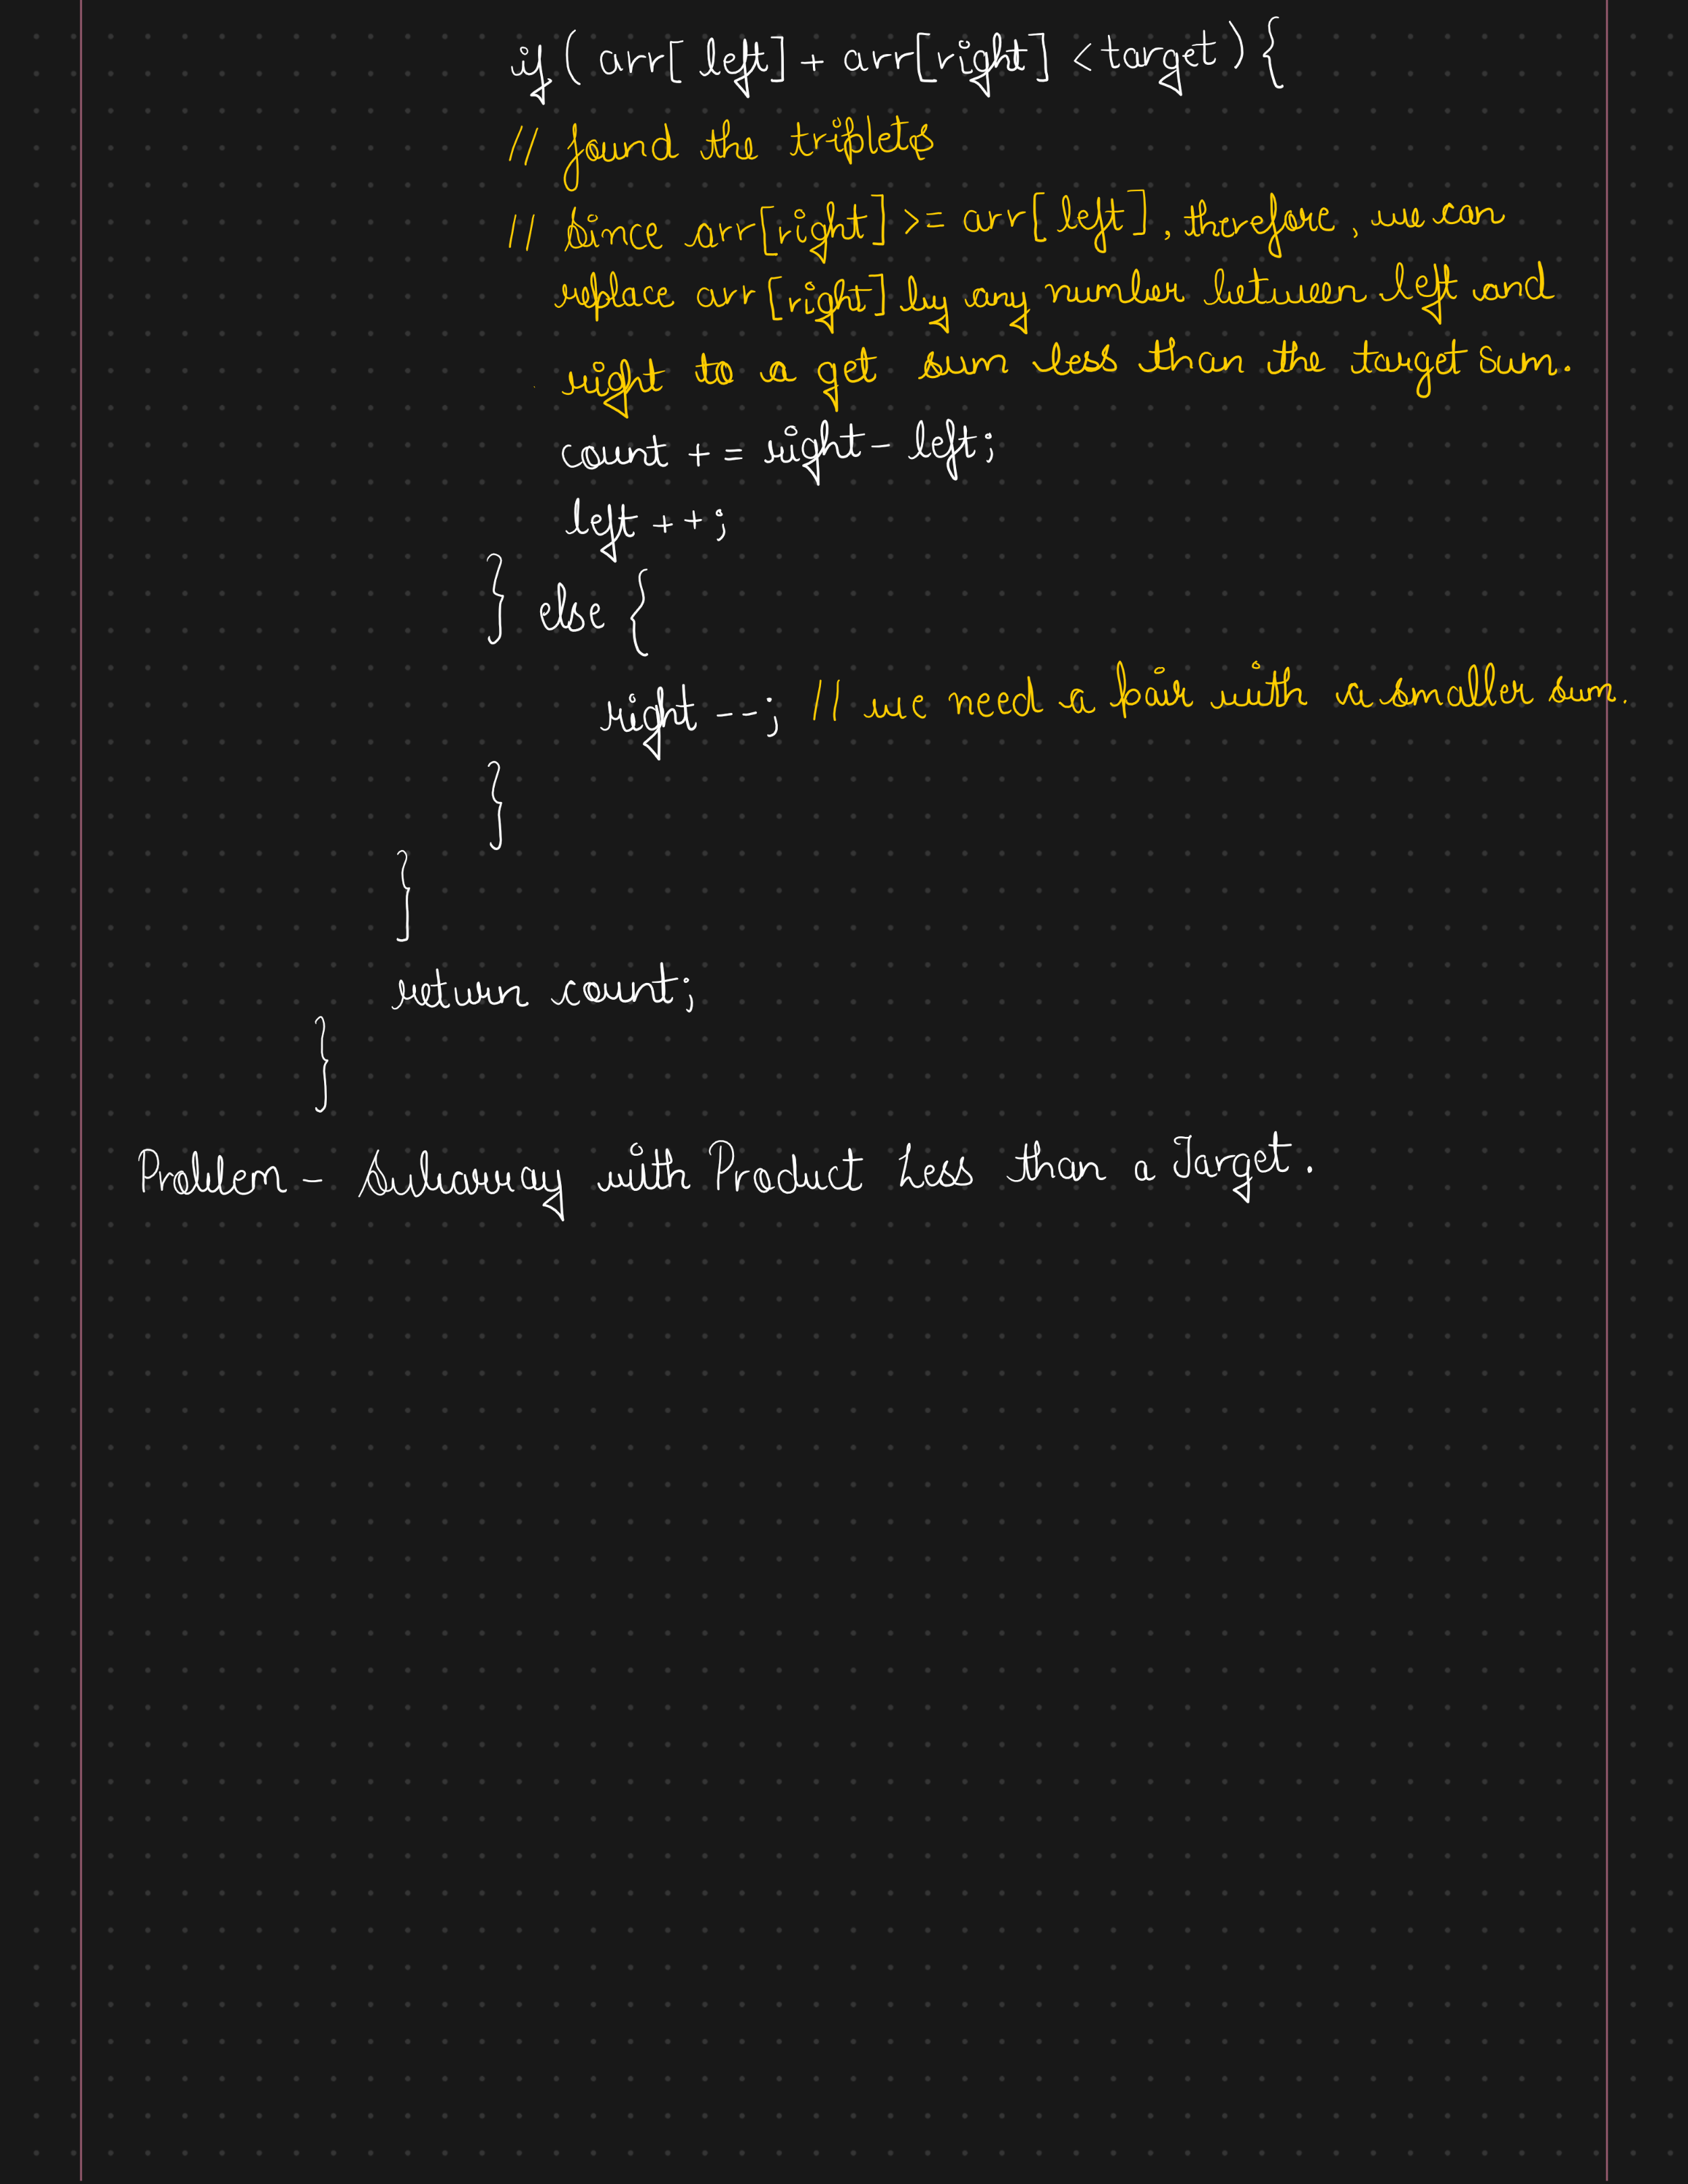 if ( arr[ left] + arr[right] < target ) {
// found the triplets
// Since arr[right] >= arr[ left ], therefore, we can
replace arr [right] by any number between left and
right to a get sum less than the target sum.
count + = right - left;
left + +;
} else {
right --; // we need a pair with a smaller sum.
}
}
return count;
}
Problem - Subarray with Product Less than a Target.